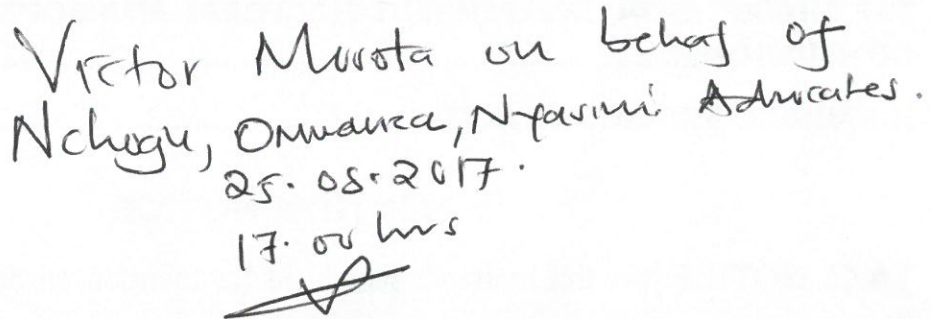 Victor Morota on behalf of
Nchogu, Omwanza, Nyasimi Advocates.
25.08.2017.
17.00 hrs